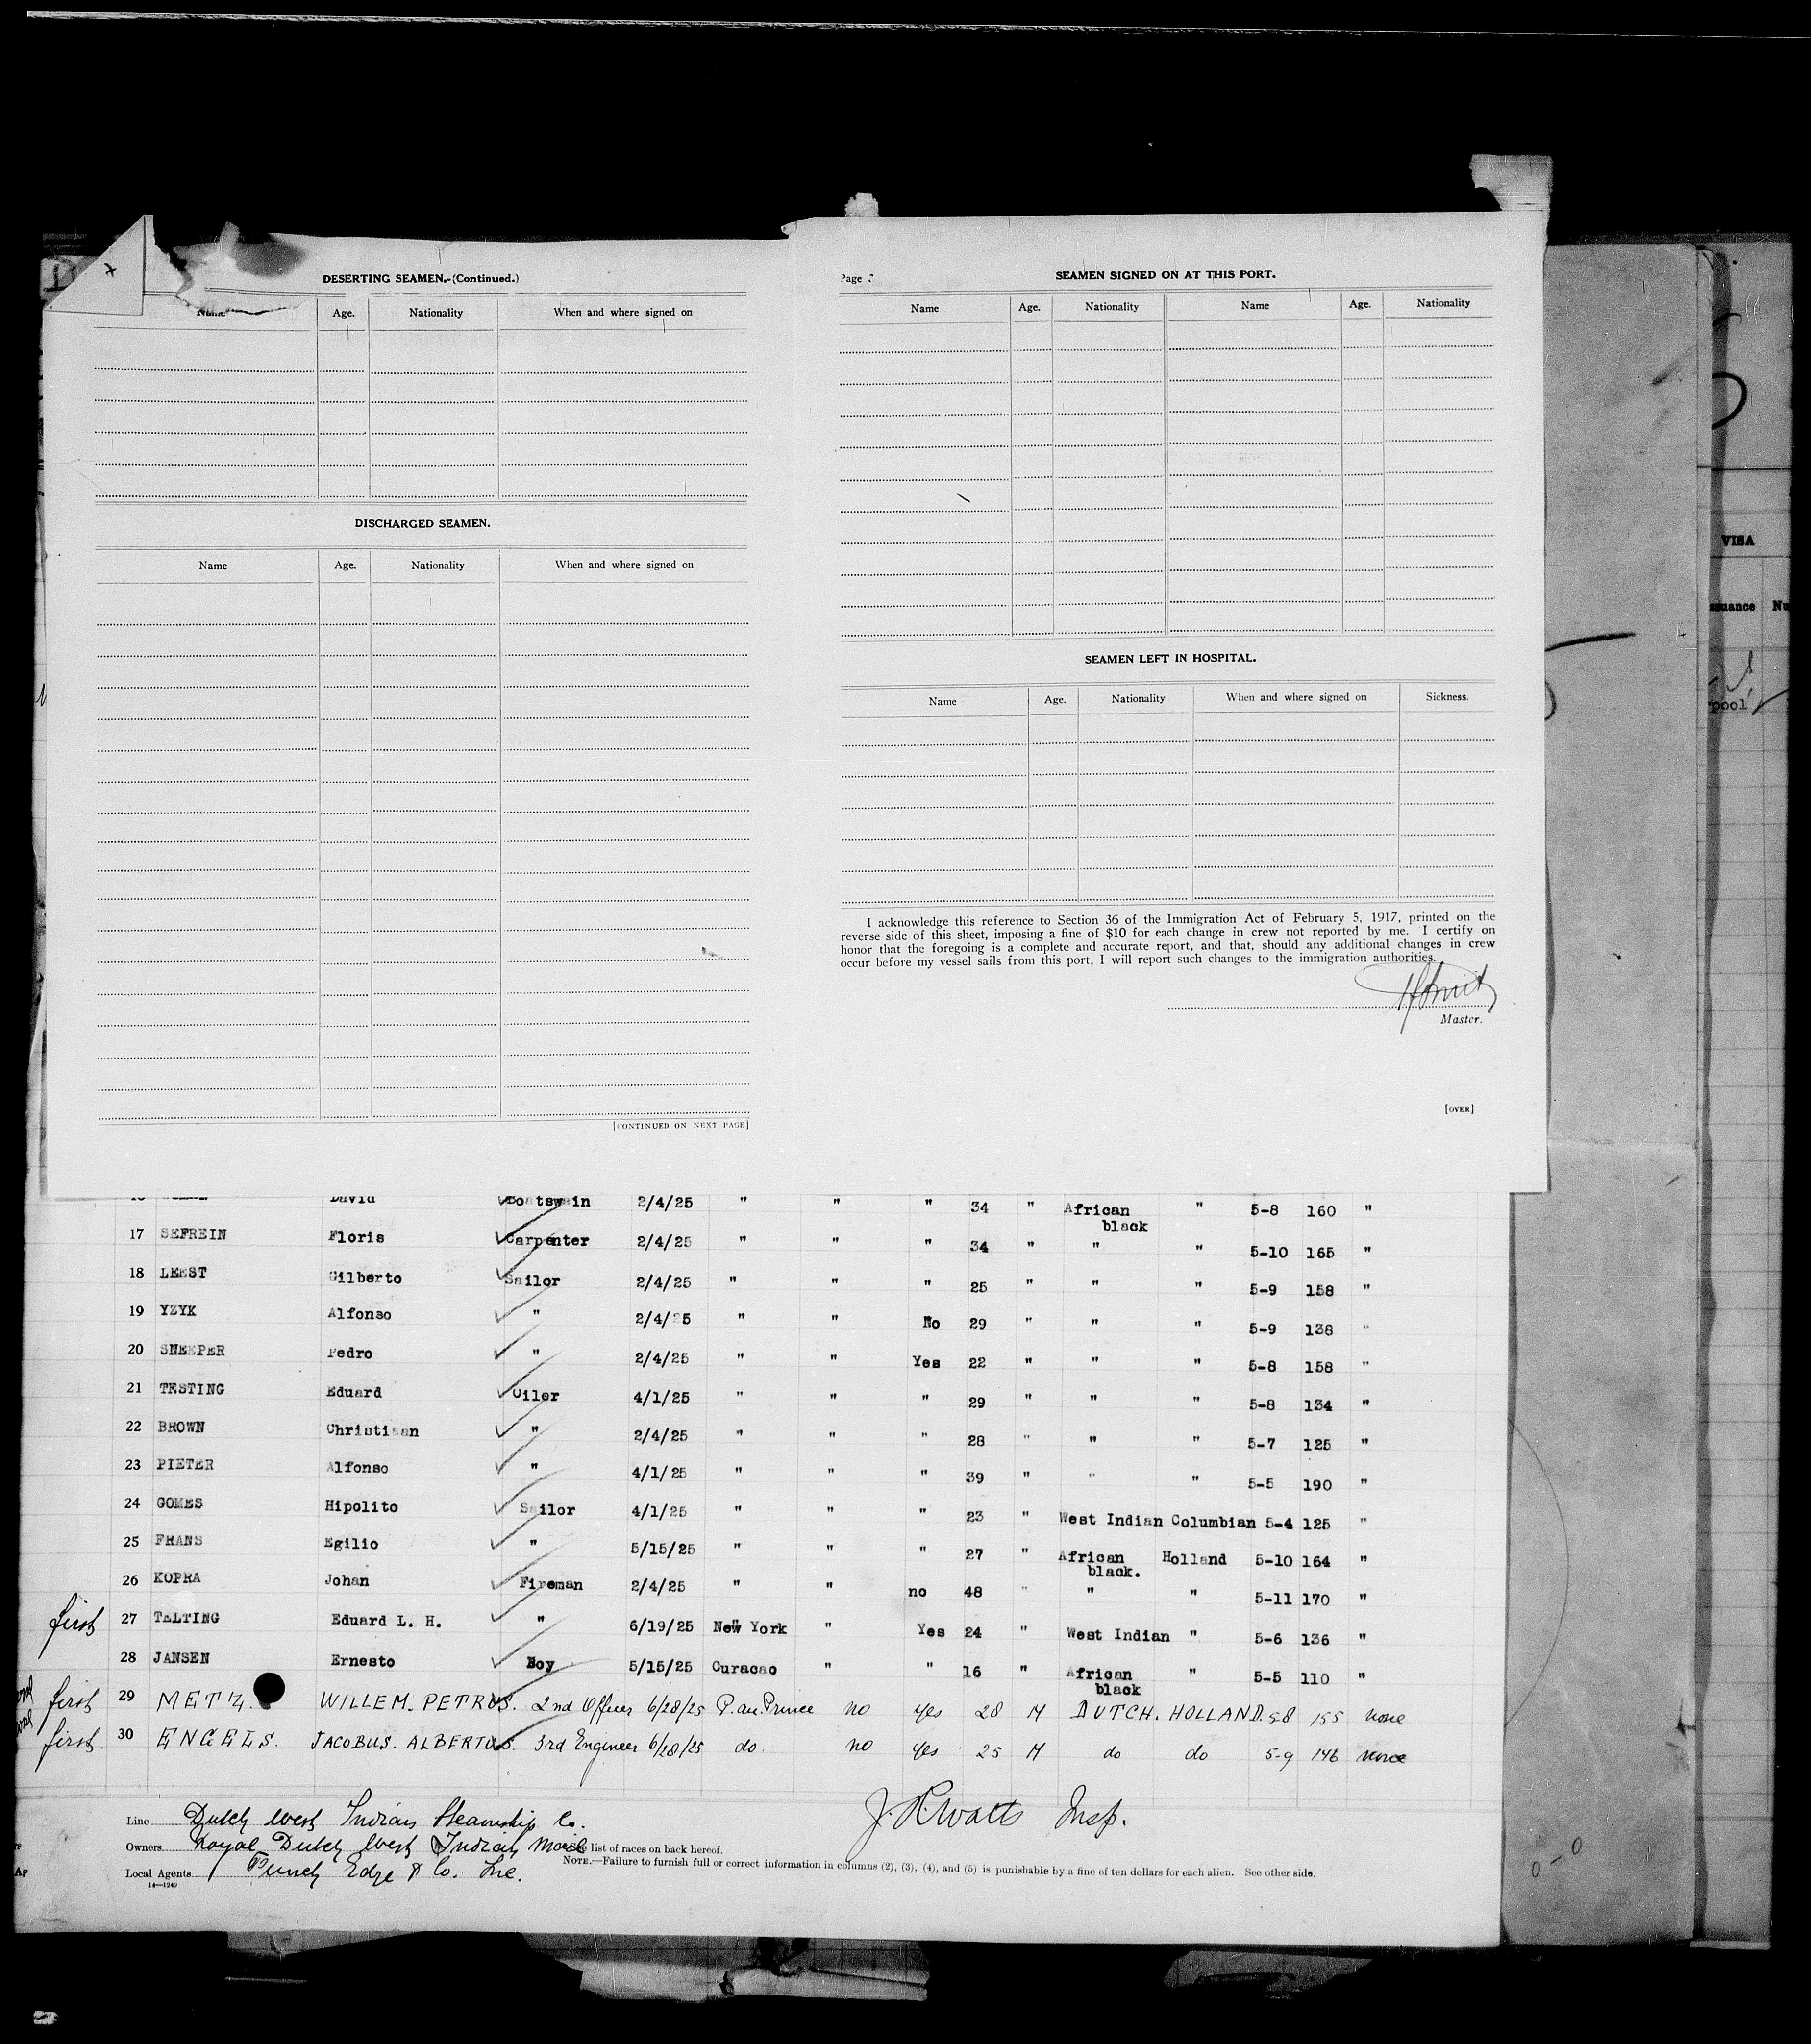 DESERTING SEAMEN.-(Continued.)
Name Age. Nationality When and where signed on
DISCHARGED SEAMEN.
Name Age. Nationality When and where signed on
[CONTINUED ON NEXT PAGE]
Page
SEAMEN SIGNED ON AT THIS PORT.
Name Age. Nationality Name Age. Nationality
SEAMEN LEFT IN HOSPITAL.
Name Age. Nationality When and where signed on Sickness.
I acknowledge this reference to Section 36 of the Immigration Act of February 5, 1917, printed on the
reverse side of this sheet, imposing a fine of $10 for each change in crew not reported by me. I certify on
honor that the foregoing is a complete and accurate report, and that, should any additional changes in crew
occur before my vessel sails from this port, I will report such changes to the immigration authorities.
Master.
[OVER]
VISA
ssuance Nu
rpool
David Boatswain 2/4/25 " " " 34 " African black " 5-8 160 "
17 SEFREIN Floris Carpenter 2/4/25 " " " 34 " " " 5-10 165 "
18 LEEST Gilberto Sailor 2/4/25 " " " 25 " " " 5-9 158 "
19 YZYK Alfonso " 2/4/25 " " No 29 " " " 5-9 138 "
20 SNEEPER Pedro " 2/4/25 " " Yes 22 " " " 5-8 158 "
21 TESTING Eduard Oiler 4/1/25 " " " 29 " " " 5-8 134 "
22 BROWN Christiaan " 2/4/25 " " " 28 " " " 5-7 125 "
23 PIETER Alfonso " 4/1/25 " " " 39 " " " 5-5 190 "
24 GOMES Hipolito Sailor 4/1/25 " " " 23 " West Indian Columbian 5-4 125 "
25 FRANS Egilio " 5/15/25 " " " 27 " African black. Holland 5-10 164 "
26 KOPRA Johan Fireman 2/4/25 " " no 48 " " " 5-11 170 "
first 27 TELTING Eduard L. H. " 6/19/25 New York " Yes 24 " West Indian " 5-6 136 "
28 JANSEN Ernesto Boy 5/15/25 Curacao " " 16 " African black " 5-5 110 "
first 29 METZ. WILLEM. PETRUS. 2nd Officer 6/28/25 P. au. Prince no yes 28 M DUTCH. HOLLAND. 5-8 155 none
first. 30 ENGELS. JACOBUS. ALBERTUS. 3rd Engineer 6/28/25 do. no yes 25 M do do 5-9 146 none
Line Dutch West Indian Steamship Co.
J. R. Watts Insp.
Owners Royal Dutch West Indian Mail
list of races on back hereof.
NOTE.—Failure to furnish full or correct information in columns (2), (3), (4), and (5) is punishable by a fine of ten dollars for each alien. See other side.
Local Agents Funch Edge & Co. Inc.
14—1240